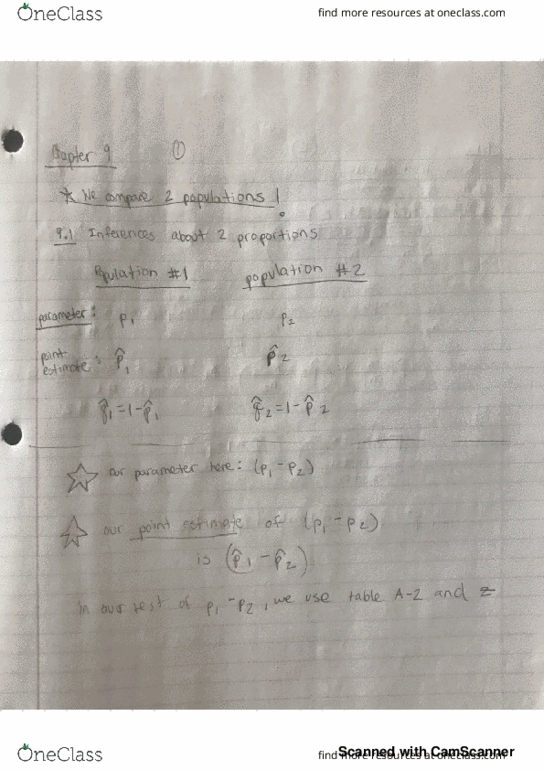 OneClass
find more resources at oneclass.com
Chapter 9 ①
★ We compare 2 populations!
9.1 Inferences about 2 proportions
Population #1 population #2
parameter: p₁ p₂
point estimate: p̂₁ p̂₂
q̂₁=1-p̂₁ q̂₂=1-p̂₂
☆ our parameter here: (p₁-p₂)
☆ our point estimate of (p₁-p₂)
is (p̂₁-p̂₂)
in our test of p₁-p₂, we use table A-2 and z
OneClass
find more resources at oneclass.com
Scanned with CamScanner